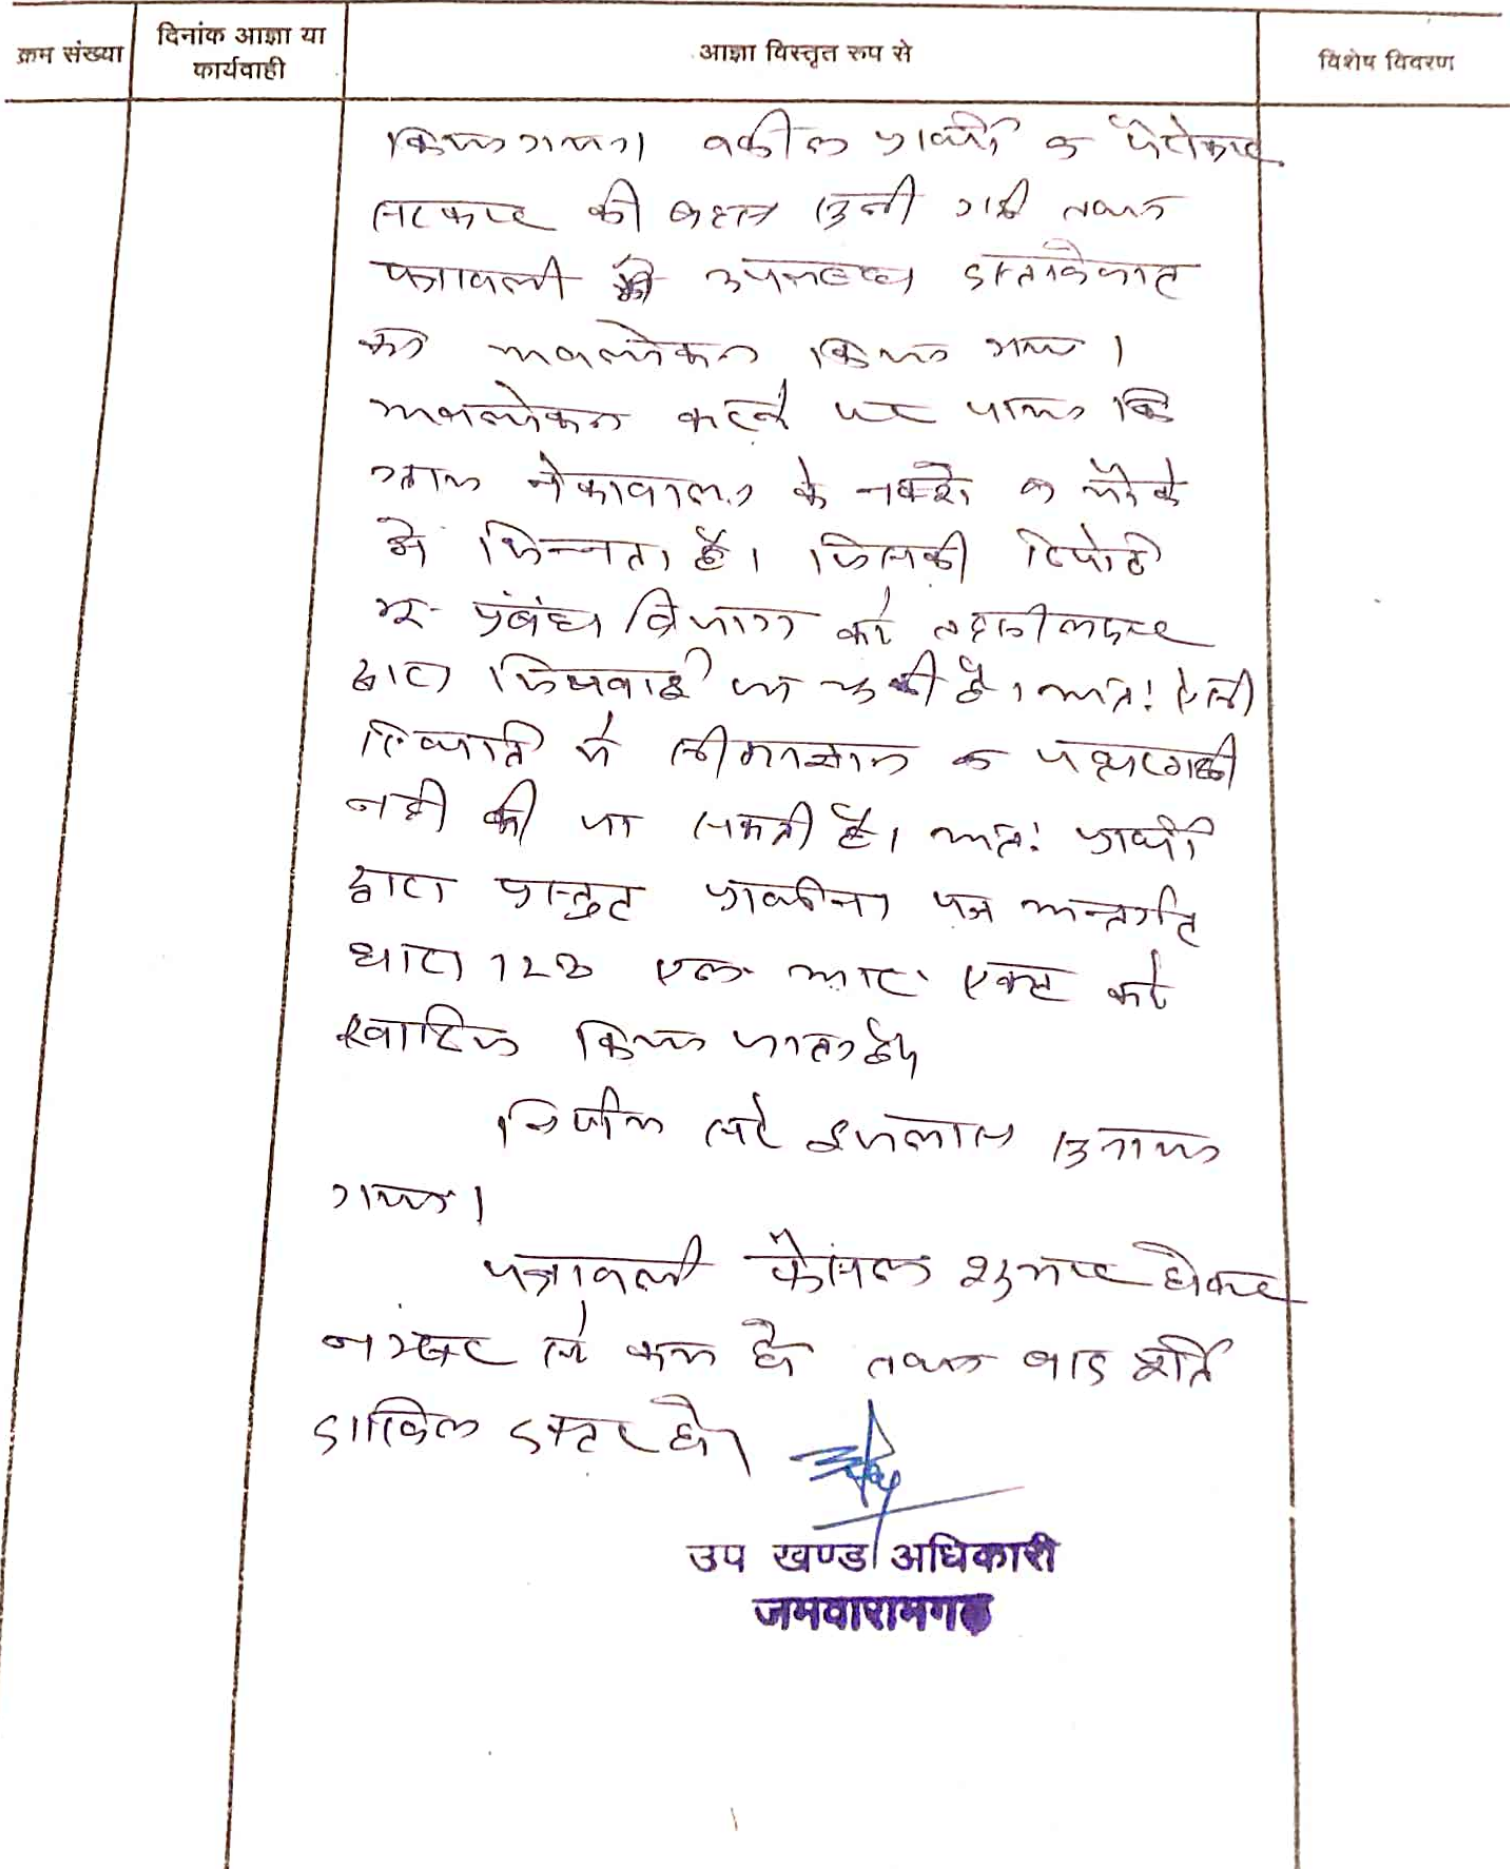 क्रम संख्या
दिनांक आज्ञा या
कार्यवाही
आज्ञा विस्तृत रूप से
विशेष विवरण
किया गया। वकील प्रार्थी व पेरोकार
सरकार की बहस सुनी गई तथा
पत्रावली में उपलब्ध दस्तावेजात
का अवलोकन किया गया।
अवलोकन करने पर पाया कि
ग्राम नेकावाला के नक्शे व मौके
में भिन्नता है। जिसकी रिपोर्ट
भू-प्रंबंध विभाग को तहसीलदार
द्वारा भिजवाई जा चुकी है। अतः ऐसी
स्थिति में सीमाज्ञान व पत्थरगढी
नही की जा सकती है। अतः प्रार्थी
द्वारा प्रस्तुत प्रार्थना पत्र अन्तर्गत
धारा 128 एल. आर. एक्ट को
खारिज किया जाता है।
निर्णय सरे इजलास सुनाया
गया।
पत्रावली फैसल शुमार होकर
नम्बर से कम हो तथा बाद पूर्ति
दाखिल दफ्तर हो।
उप खण्ड अधिकारी
जमवारामगढ